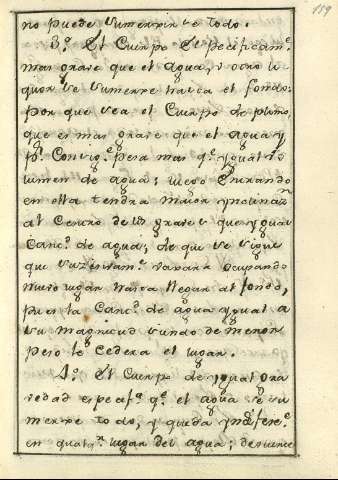 119
no puede sumerxirse todo.
3º El Cuerpo especificamᵉ
mas grave que el agua, u otro li
quor se sumerxe hasta el fondo.
porque sea el Cuerpo de plomo,
que es mas grave que el agua y
pʳ Consigᵗᵉ pesa mas qᵉ ygual vo
lumen de agua; luego entrando
en ella tendra maior ynclinazⁿ
al Centro de los graves que ygual
Cantᵈ de agua; de que se sigue
que sucesivamᵗᵉ vaxara ocupando
nuevo lugar hasta llegar al fondo,
pues la Cantᵈ de agua ygual a
su magnitud siendo de menor
peso le Cedera el lugar.
4º El Cuerpo de ygual gra
vedad especifᵃ qᵉ el agua se su
merxe todo, y queda yndiferᵗᵉ
en qualqʳ lugar del agua;